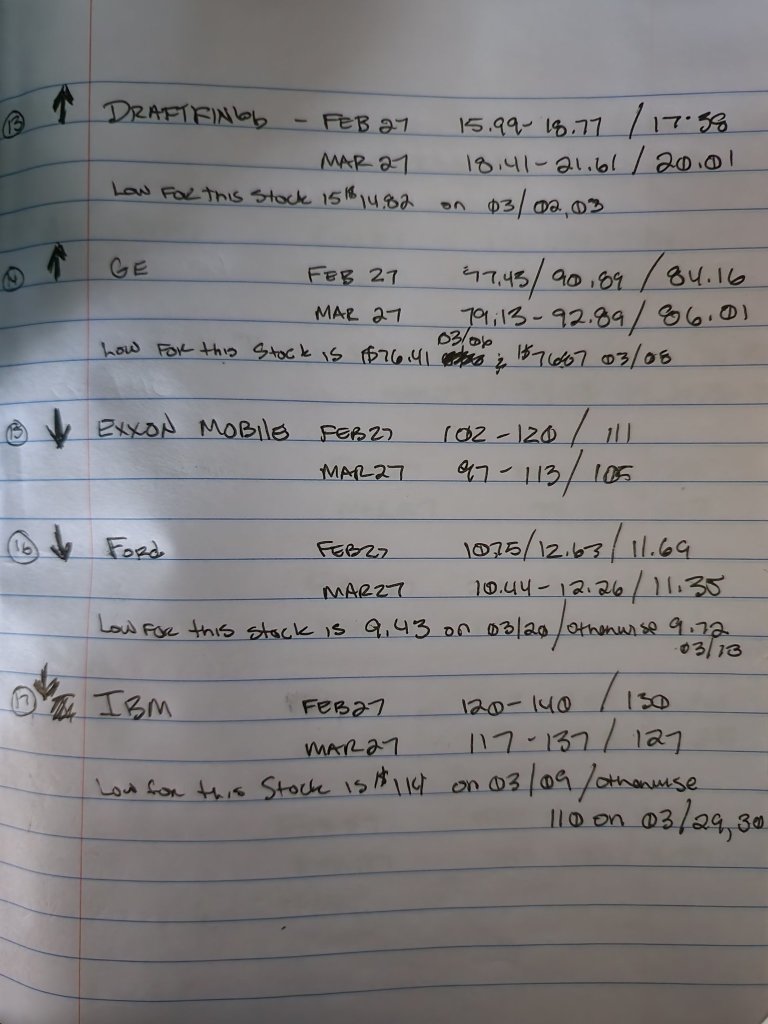 13 ↑ DRAFTKINGS - FEB 27 15.99-18.77 / 17.38
MAR 27 18.41-21.61 / 20.01
Low For this Stock is $14.82 on 03/02,03
↑ GE FEB 27 77.43/90.89 / 84.16
MAR 27 79.13-92.89/86.01
03/06
Low For this Stock is $76.41 & $76.07 03/08
15 ↓ EXXON MOBILE FEB27 102-120 / 111
MAR27 97-113/105
16 ↓ Ford FEB27 10.75/12.63/11.69
MAR27 10.44-12.26/11.35
Low For this Stock is 9.43 on 03/20/otherwise 9.72
03/13
17 ↓ IBM FEB27 120-140 / 130
MAR27 117-137/127
Low for this Stock is $114 on 03/09/otherwise
110 on 03/29,30